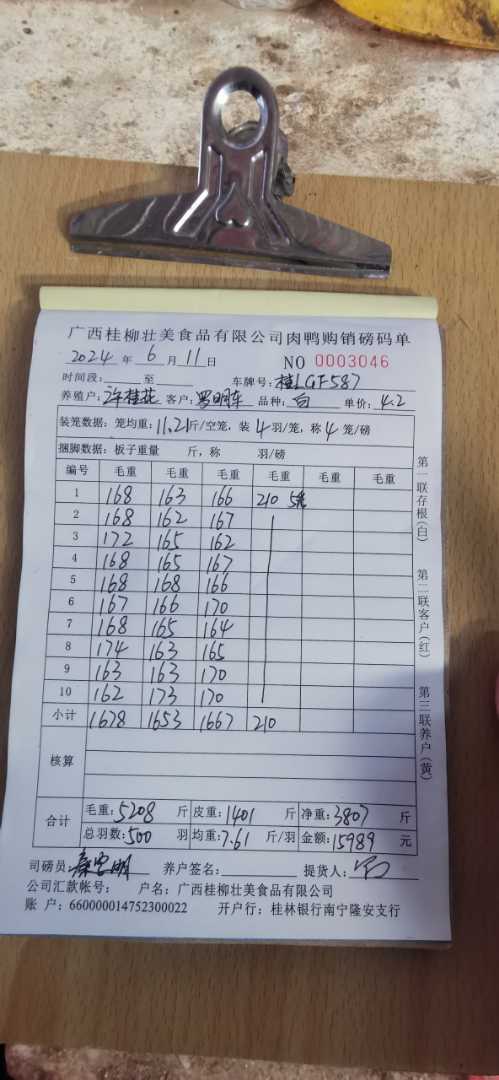 广西桂柳壮美食品有限公司肉鸭购销磅码单
2024 年 6 月 11 日 NO 0003046
时间段: 至 车牌号: 桂LGF587
养殖户: 许桂花 客户: 罗明车 品种: 白 单价: 4.2
装笼数据: 笼均重: 11.21 斤/空笼, 装 4 羽/笼, 称 4 笼/磅
捆脚数据: 板子重量 斤, 称 羽/磅
编号 毛重 毛重 毛重 毛重 毛重 毛重
1 168 163 166 210 5笼
2 168 162 167
3 172 165 162
4 168 165 167
5 168 168 166
6 167 166 170
7 168 165 164
8 174 163 165
9 163 163 170
10 162 173 170
小计 1678 1653 1667 210
核算
合计 毛重: 5208 斤 皮重: 1401 斤 净重: 3807 斤
总羽数: 500 羽 均重: 7.61 斤/羽 金额: 15989 元
司磅员: 养户签名: 提货人:
公司汇款帐号: 户名: 广西桂柳壮美食品有限公司
账 户: 660000014752300022 开户行: 桂林银行南宁隆安支行
第一联存根(白)
第二联客户(红)
第三联养户(黄)